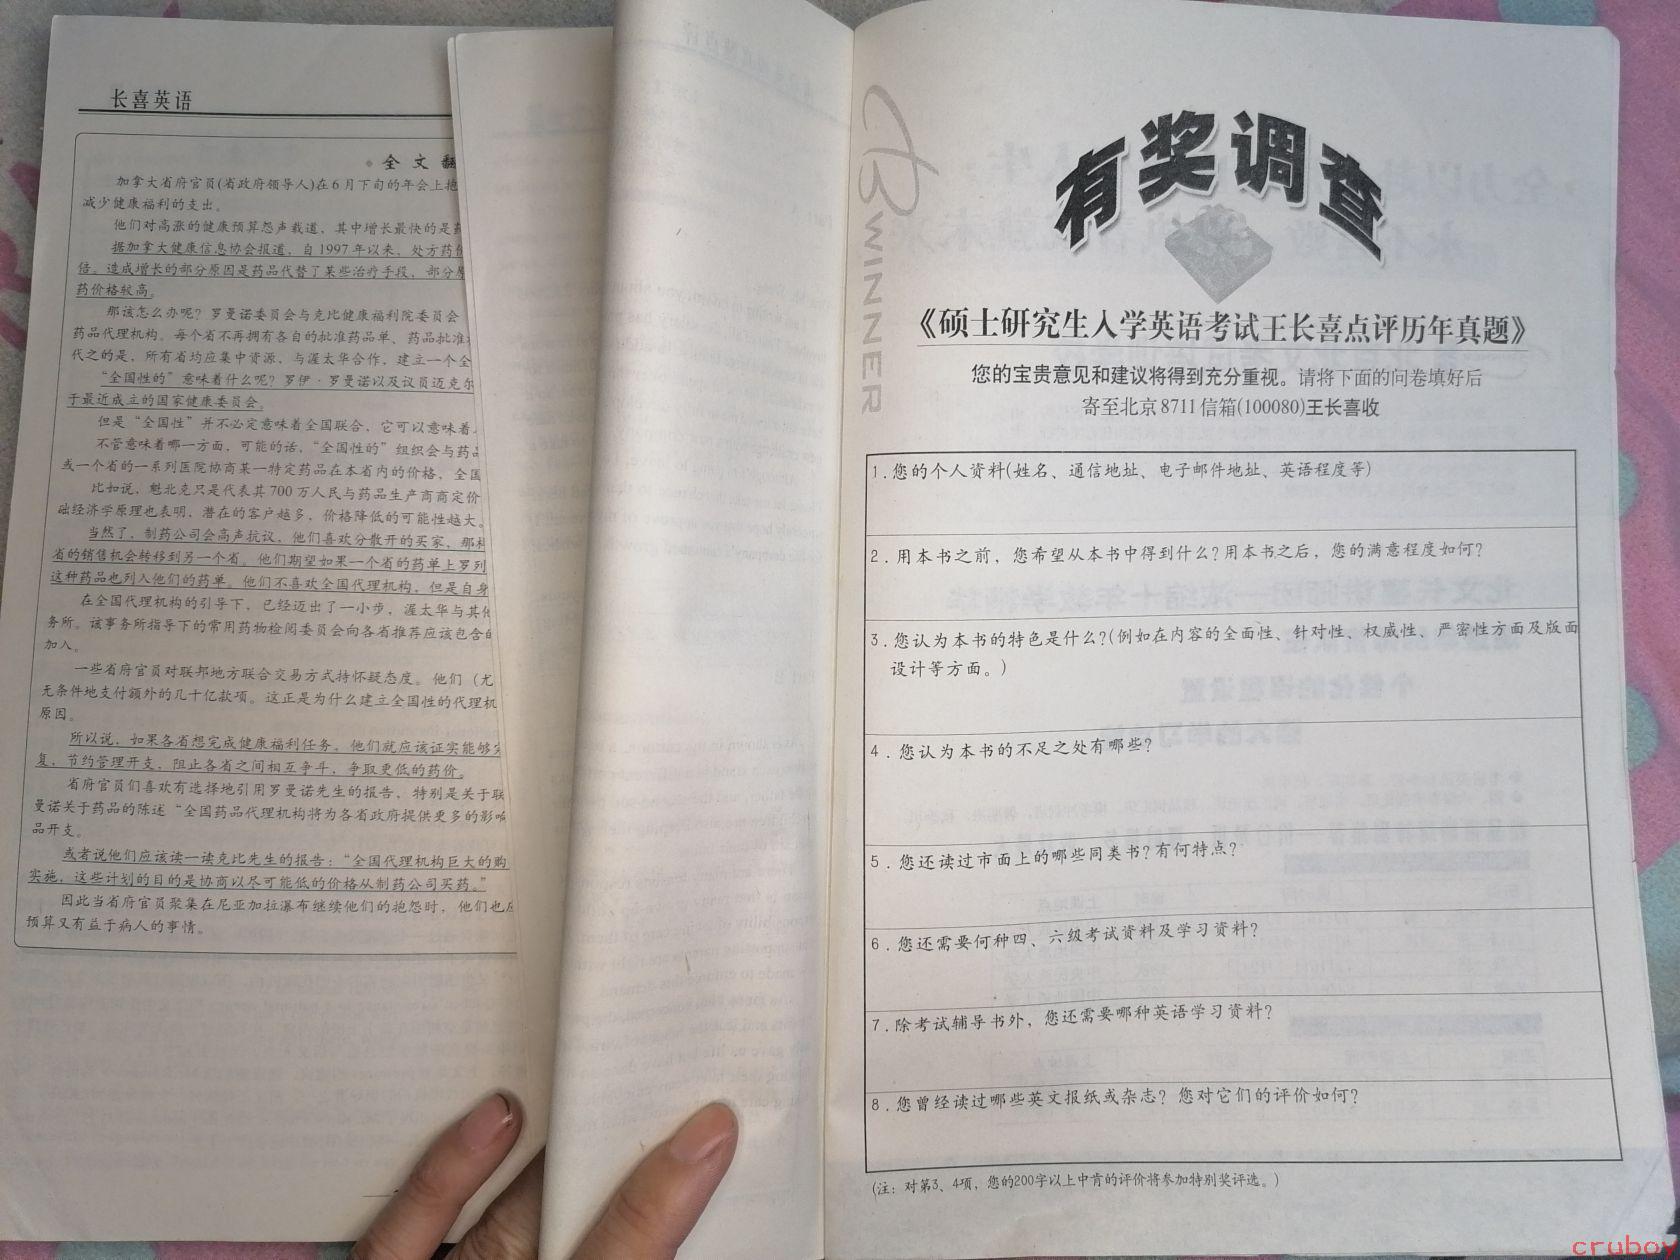 长喜英语
全 文 翻
加拿大省府官员(省政府领导人)在6月下旬的年会上抱
减少健康福利的支出。
他们对高涨的健康预算怨声载道，其中增长最快的是药
据加拿大健康信息协会报道，自1997年以来，处方药价
倍。造成增长的部分原因是药品代替了某些治疗手段，部分原
药价格较高。
那该怎么办呢？罗曼诺委员会与克比健康福利院委员会
药品代理机构。每个省不再拥有各自的批准药品单、药品批准
代之的是，所有省均应集中资源，与渥太华合作，建立一个全
“全国性的”意味着什么呢？罗伊·罗曼诺以及议员迈克尔
于最近成立的国家健康委员会。
但是“全国性”并不必定意味着全国联合，它可以意味着
不管意味着哪一方面，可能的话，“全国性的”组织会与药品
或一个省的一系列医院协商某一特定药品在本省内的价格，全国
比如说，魁北克只是代表其700万人民与药品生产商商定价
础经济学原理也表明，潜在的客户越多，价格降低的可能性越大。
当然了，制药公司会高声抗议，他们喜欢分散开的买家，那样
省的销售机会转移到另一个省。他们期望如果一个省的药单上罗列
这种药品也列入他们的药单。他们不喜欢全国代理机构，但是自身
在全国代理机构的引导下，已经迈出了一小步，渥太华与其他
务所。该事务所指导下的常用药物检阅委员会向各省推荐应该包含的
加入。
一些省府官员对联邦地方联合交易方式持怀疑态度。他们（尤
无条件地支付额外的几十亿款项。这正是为什么建立全国性的代理机
原因。
所以说，如果各省想完成健康福利任务。他们就应该证实能够实
复，节约管理开支，阻止各省之间相互争斗，争取更低的药价。
省府官员们喜欢有选择地引用罗曼诺先生的报告，特别是关于联
曼诺关于药品的陈述“全国药品代理机构将为各省政府提供更多的影响
品开支。
或者说他们应该读一读克比先生的报告：“全国代理机构巨大的购
实施，这些计划的目的是协商以尽可能低的价格从制药公司买药。”
因此当省府官员聚集在尼亚加拉瀑布继续他们的抱怨时，他们也应
预算又有益于病人的事情。
WINNER
有奖调查
《硕士研究生入学英语考试王长喜点评历年真题》
您的宝贵意见和建议将得到充分重视。请将下面的问卷填好后
寄至北京8711信箱(100080)王长喜收
1.您的个人资料(姓名、通信地址、电子邮件地址、英语程度等)
2.用本书之前，您希望从本书中得到什么？用本书之后，您的满意程度如何？
3.您认为本书的特色是什么？(例如在内容的全面性、针对性、权威性、严密性方面及版面
设计等方面。)
4.您认为本书的不足之处有哪些？
5.您还读过市面上的哪些同类书？有何特点？
6.您还需要何种四、六级考试资料及学习资料？
7.除考试辅导书外，您还需要哪种英语学习资料？
8.您曾经读过哪些英文报纸或杂志？您对它们的评价如何？
(注：对第3、4项，您的200字以上中肯的评价将参加特别奖评选。)
cruboy